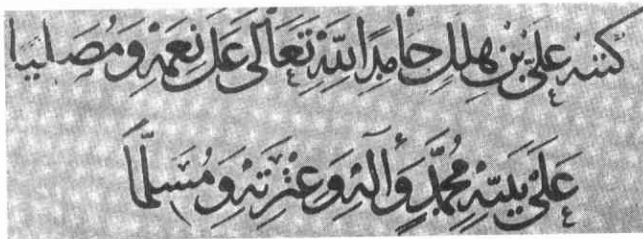 كتبه علي بن هلال حامدا لله تعالى على نعمه ومصليا
على نبيه محمد وآله وعترته ومسلما